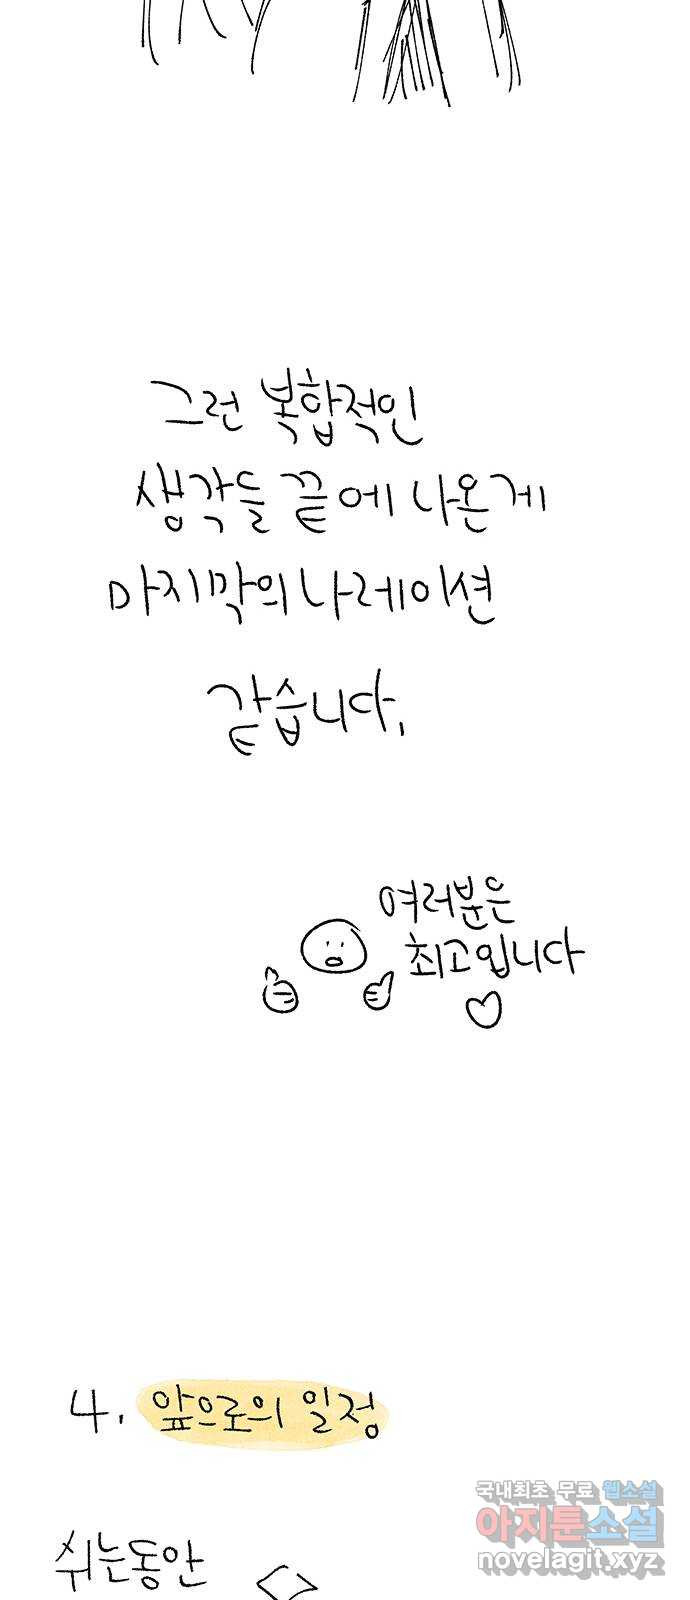 그런 복합적인
생각들 끝에 나온게
마지막의 나레이션
같습니다.
여러분은
최고입니다
4. 앞으로의 일정
국내최초 무료 웹소설
아지툰소설
novelagit.xyz
쉬는동안